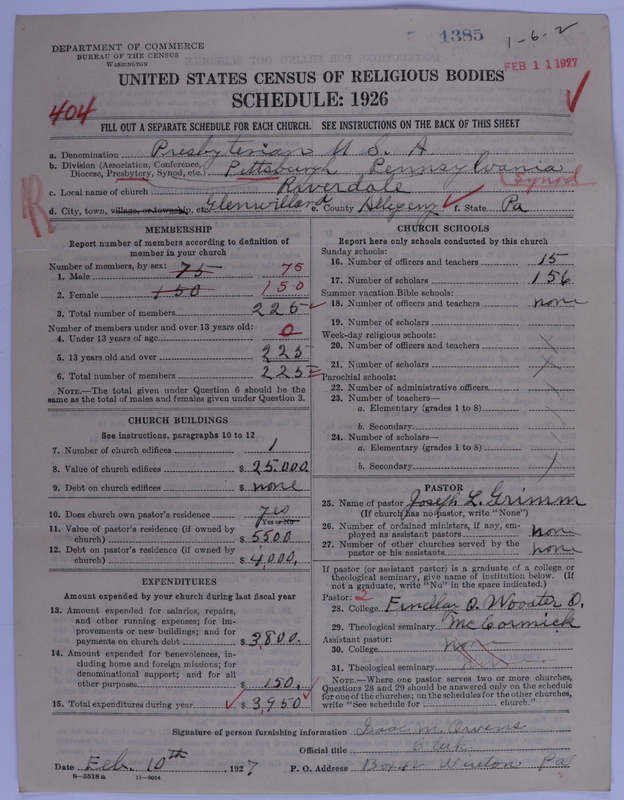 1385
1-6-2
FEB 11 1927
DEPARTMENT OF COMMERCE
BUREAU OF THE CENSUS
WASHINGTON
UNITED STATES CENSUS OF RELIGIOUS BODIES
SCHEDULE: 1926
404
FILL OUT A SEPARATE SCHEDULE FOR EACH CHURCH. SEE INSTRUCTIONS ON THE BACK OF THIS SHEET
a. Denomination Presbyterian U S A
b. Division (Association, Conference, Diocese, Presbytery, Synod, etc.) Pittsburgh Pennsylvania (Synod
c. Local name of church Riverdale
d. City, town, village, or township, etc. Glenwillard e. County Allegeny f. State Pa
R
MEMBERSHIP
Report number of members according to definition of
member in your church
Number of members, by sex:
1. Male 75 75
2. Female 150 150
3. Total number of members 225
Number of members under and over 13 years old:
4. Under 13 years of age 0
5. 13 years old and over 225
6. Total number of members 225
NOTE.—The total given under Question 6 should be the
same as the total of males and females given under Question 3.
CHURCH BUILDINGS
See instructions, paragraphs 10 to 12
7. Number of church edifices 1
8. Value of church edifices $ 25.000
9. Debt on church edifices $ none
10. Does church own pastor's residence yes
YES OR NO
11. Value of pastor's residence (if owned by
church) $ 5500
12. Debt on pastor's residence (if owned by
church) $ 4,000.
EXPENDITURES
Amount expended by your church during last fiscal year
13. Amount expended for salaries, repairs,
and other running expenses; for im-
provements or new buildings; and for
payments on church debt $ 3,800.
14. Amount expended for benevolences, in-
cluding home and foreign missions; for
denominational support; and for all
other purposes $ 150.
15. Total expenditures during year $ 3,950
CHURCH SCHOOLS
Report here only schools conducted by this church
Sunday schools:
16. Number of officers and teachers 15
17. Number of scholars 156
Summer vacation Bible schools:
18. Number of officers and teachers none
19. Number of scholars
Week-day religious schools:
20. Number of officers and teachers
21. Number of scholars
Parochial schools:
22. Number of administrative officers
23. Number of teachers—
a. Elementary (grades 1 to 8)
b. Secondary
24. Number of scholars—
a. Elementary (grades 1 to 8)
b. Secondary
PASTOR
25. Name of pastor Joseph L. Grimm
(If church has no pastor, write "None")
26. Number of ordained ministers, if any, em-
ployed as assistant pastors none
27. Number of other churches served by the
pastor or his assistants none
If pastor (or assistant pastor) is a graduate of a college or
theological seminary, give name of institution below. (If
not a graduate, write "No" in the space indicated.)
Pastor: 2
28. College Findlay O. Wooster O.
29. Theological seminary McCormick
Assistant pastor:
30. College none
31. Theological seminary
NOTE.—Where one pastor serves two or more churches,
Questions 28 and 29 should be answered only on the schedule
for one of the churches; on the schedules for the other churches,
write "See schedule for church."
Signature of person furnishing information Isaac M. Owens
Official title Clerk
Date Feb. 10th, 1927 P. O. Address Box Pa
8—5518a 11—8654